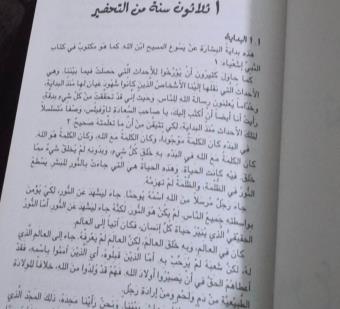 ١ ثلاثون سنة من التحضير
١.١ البداية
هذه بداية البشارة عن يسوع المسيح ابن الله. كما هو مكتوب في كتاب
النبي إشعياء ١
كما حاول كثيرون أن يؤرخوا للأحداث التي حصلت فيما بيننا، وهي
الأحداث التي نقلها إلينا الأشخاص الذين كانوا شهود عيان لها منذ البداية،
وخداما يعلنون رسالة الله للناس. وحيث إني قد تحققت من كل شيء بدقة،
رأيت أنا أيضا أن أكتب إليك، يا صاحب السعادة تاوفيلس، وصفا متسلسلا
لتلك الأحداث منذ البداية، لكي تتيقن من أن ما تعلمته صحيح ٢
في البدء كان الكلمة موجودا، وكان الكلمة مع الله، وكان الكلمة هو الله.
كان الكلمة مع الله في البدء. به خلق كل شيء، وبدونه لم يخلق شيء مما
خلق. فيه كانت الحياة، وهذه الحياة هي التي جاءت بالنور للبشر. يسطع
النور في الظلمة، والظلمة لم تهزمه.
جاء رجل مرسلا من الله اسمه يوحنا. جاء ليشهد عن النور لكي يؤمن
بواسطته جميع الناس. لم يكن هو النور لكنه جاء ليشهد عن النور. أما النور
الحقيقي الذي ينير حياة كل إنسان، فكان آتيا إلى العالم.
كان في العالم، وبه خلق العالم، لكن العالم لم يعرفه. جاء إلى العالم الذي
له، لكن شعبه لم يرحب به. أما الذين قبلوه، أي الذين آمنوا باسمه، فقد
أعطاهم الحق في أن يصيروا أولاد الله. فهم قد ولدوا من الله، خلافا للولادة
الطبيعية من دم ولحم ومن إرادة رجل.
بيننا. ونحن رأينا مجده، ذلك المجد الذي